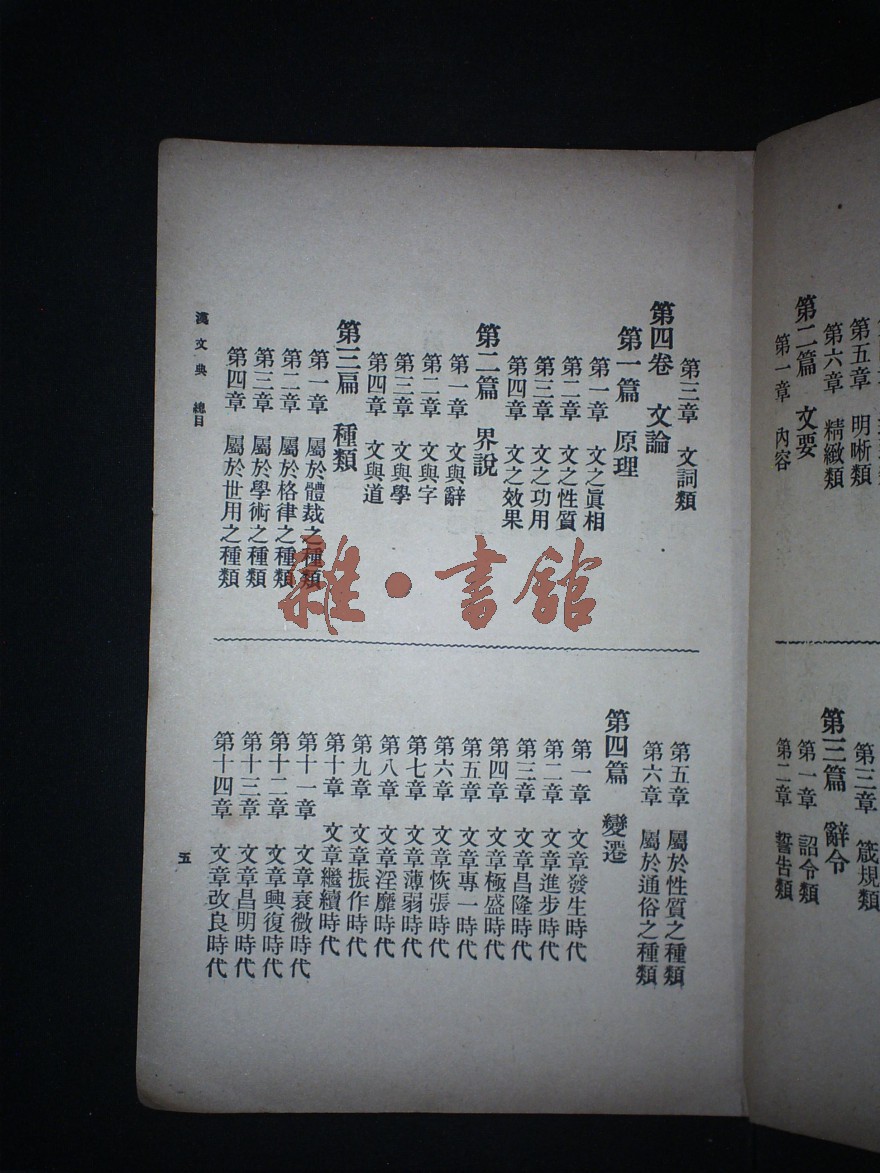 第二篇 文要
第一章 內容
第五章 明晰類
第六章 精緻類
第三篇 辭令
第一章 詔令類
第二章 誓告類
第三章 箴規類
第三章 文詞類
第四卷 文論
第一篇 原理
第一章 文之眞相
第二章 文之性質
第三章 文之功用
第四章 文之效果
第二篇 界說
第一章 文與辭
第二章 文與字
第三章 文與學
第四章 文與道
第三篇 種類
第一章 屬於體裁之種類
第二章 屬於格律之種類
第三章 屬於學術之種類
第四章 屬於世用之種類
第五章 屬於性質之種類
第六章 屬於通俗之種類
第四篇 變遷
第一章 文章發生時代
第二章 文章進步時代
第三章 文章昌隆時代
第四章 文章極盛時代
第五章 文章專一時代
第六章 文章恢張時代
第七章 文章薄弱時代
第八章 文章淫靡時代
第九章 文章振作時代
第十章 文章繼續時代
第十一章 文章衰微時代
第十二章 文章興復時代
第十三章 文章昌明時代
第十四章 文章改良時代
漢文典 總目
五
雜·書館